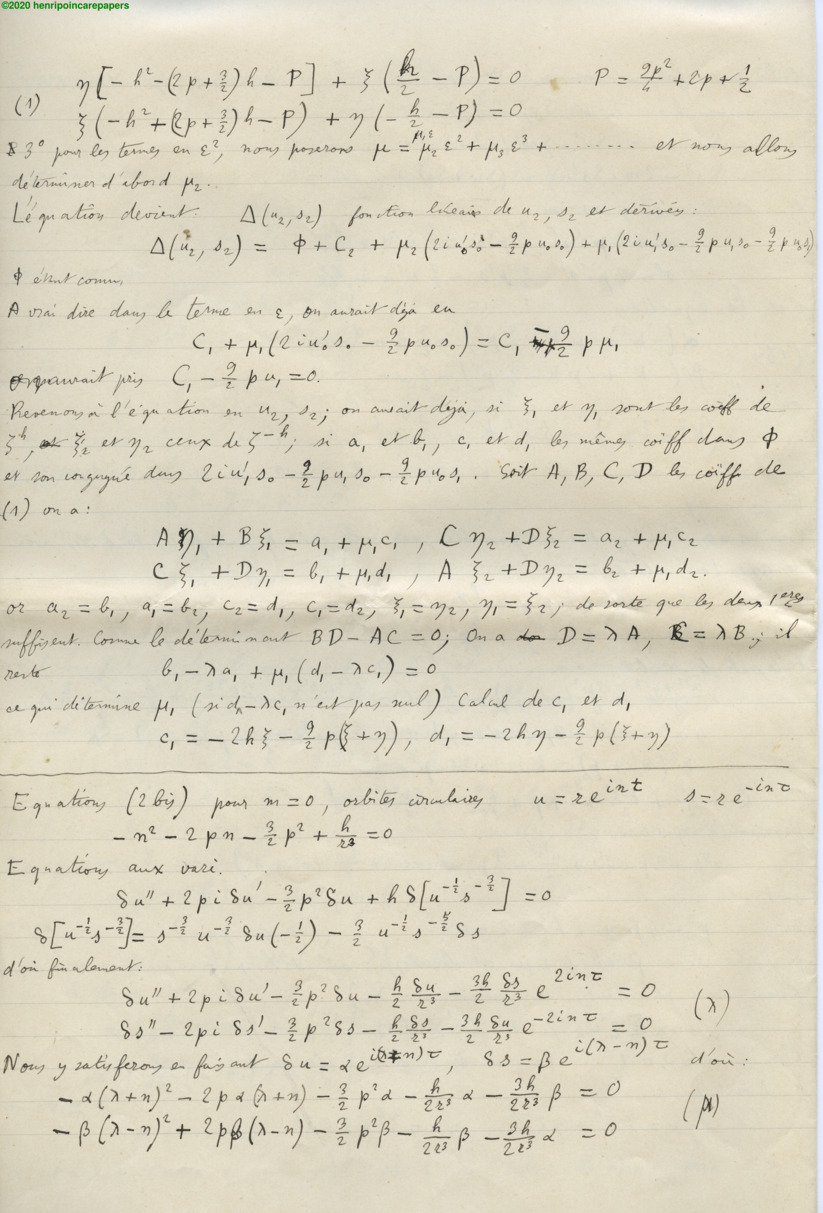 ©2020 henripoincarepapers
η[− h² − (2p + 3/2) h − P] + ξ (h/2 − P) = 0      P = 9p²/4 + 2p + 1/2
(1)
ξ (− h² + (2p + 3/2) h − P) + η (− h/2 − P) = 0
3° pour les termes en ε², nous poserons μ = μ₁ε + μ₂ ε² + μ₃ ε³ + ········ et nous allons
déterminer d'abord μ₂..
L'équation devient: Δ(u₂, s₂) fonction linéaire de u₂, s₂ et dérivées:
Δ(u₂, s₂) = Φ + C₂ + μ₂ (2i u'₀ s₀ − 9/2 p u₀ s₀) + μ₁ (2i u'₁ s₀ − 9/2 p u₁ s₀ − 9/2 p u₀ s₁)
Φ étant connu
A vrai dire dans le terme en ε, on aurait déjà eu
C₁ + μ₁ (2i u'₀ s₀ − 9/2 p u₀ s₀) = C₁ − 9/2 p μ₁
on aurait pris C₁ − 9/2 p μ₁ = 0.
Revenons à l'équation en u₂, s₂; on aurait déjà, si ξ₁ et η₁ sont les coëff de
ζʰ, ξ₂ et η₂ ceux de ζ⁻ʰ; si a₁ et b₁, c₁ et d₁ les mêmes coëff dans Φ
et son conjugué dans 2i u'₁ s₀ − 9/2 p u₁ s₀ − 9/2 p u₀ s₁. Soit A, B, C, D les coëff de
(1) on a:
A η₁ + B ξ₁ = a₁ + μ₁c₁ , C η₂ + D ξ₂ = a₂ + μ₁c₂
C ξ₁ + D η₁ = b₁ + μ₁d₁ , A ξ₂ + D η₂ = b₂ + μ₁d₂.
or a₂ = b₁, a₁ = b₂, c₂ = d₁, c₁ = d₂, ξ₁ = η₂, η₁ = ξ₂; de sorte que les deux 1ères
suffisent. Comme le déterminant BD − AC = 0; On a D = λA, C = λB; il
reste b₁ − λa₁ + μ₁ (d₁ − λc₁) = 0
ce qui détermine μ₁ (si d₁ − λc₁ n'est pas nul) Calcul de c₁ et d₁
c₁ = − 2hξ − 9/2 p(ξ + η), d₁ = − 2hη − 9/2 p(ξ + η)
Equations (2 bis) pour m = 0, orbites circulaires u = r e^{inτ} s = r e^{−inτ}
− n² − 2pn − 3/2 p² + h/r³ = 0
Equations aux vari.
δu'' + 2pi δu' − 3/2 p² δu + h δ[u^{−1/2} s^{−3/2}] = 0
δ[u^{−1/2} s^{−3/2}] = s^{−3/2} u^{−3/2} δu (−1/2) − 3/2 u^{−1/2} s^{−5/2} δs
d'où finalement:
δu'' + 2pi δu' − 3/2 p² δu − h/2 δu/r³ − 3h/2 δs/r³ e^{2inτ} = 0
(λ)
δs'' − 2pi δs' − 3/2 p² δs − h/2 δs/r³ − 3h/2 δu/r³ e^{−2inτ} = 0
Nous y satisferons en faisant δu = α e^{i(λ+n)τ}, δs = β e^{i(λ−n)τ} d'où:
− α (λ+n)² − 2pα (λ+n) − 3/2 p² α − h/2r³ α − 3h/2r³ β = 0
(μ)
− β (λ−n)² + 2pβ (λ−n) − 3/2 p² β − h/2r³ β − 3h/2r³ α = 0